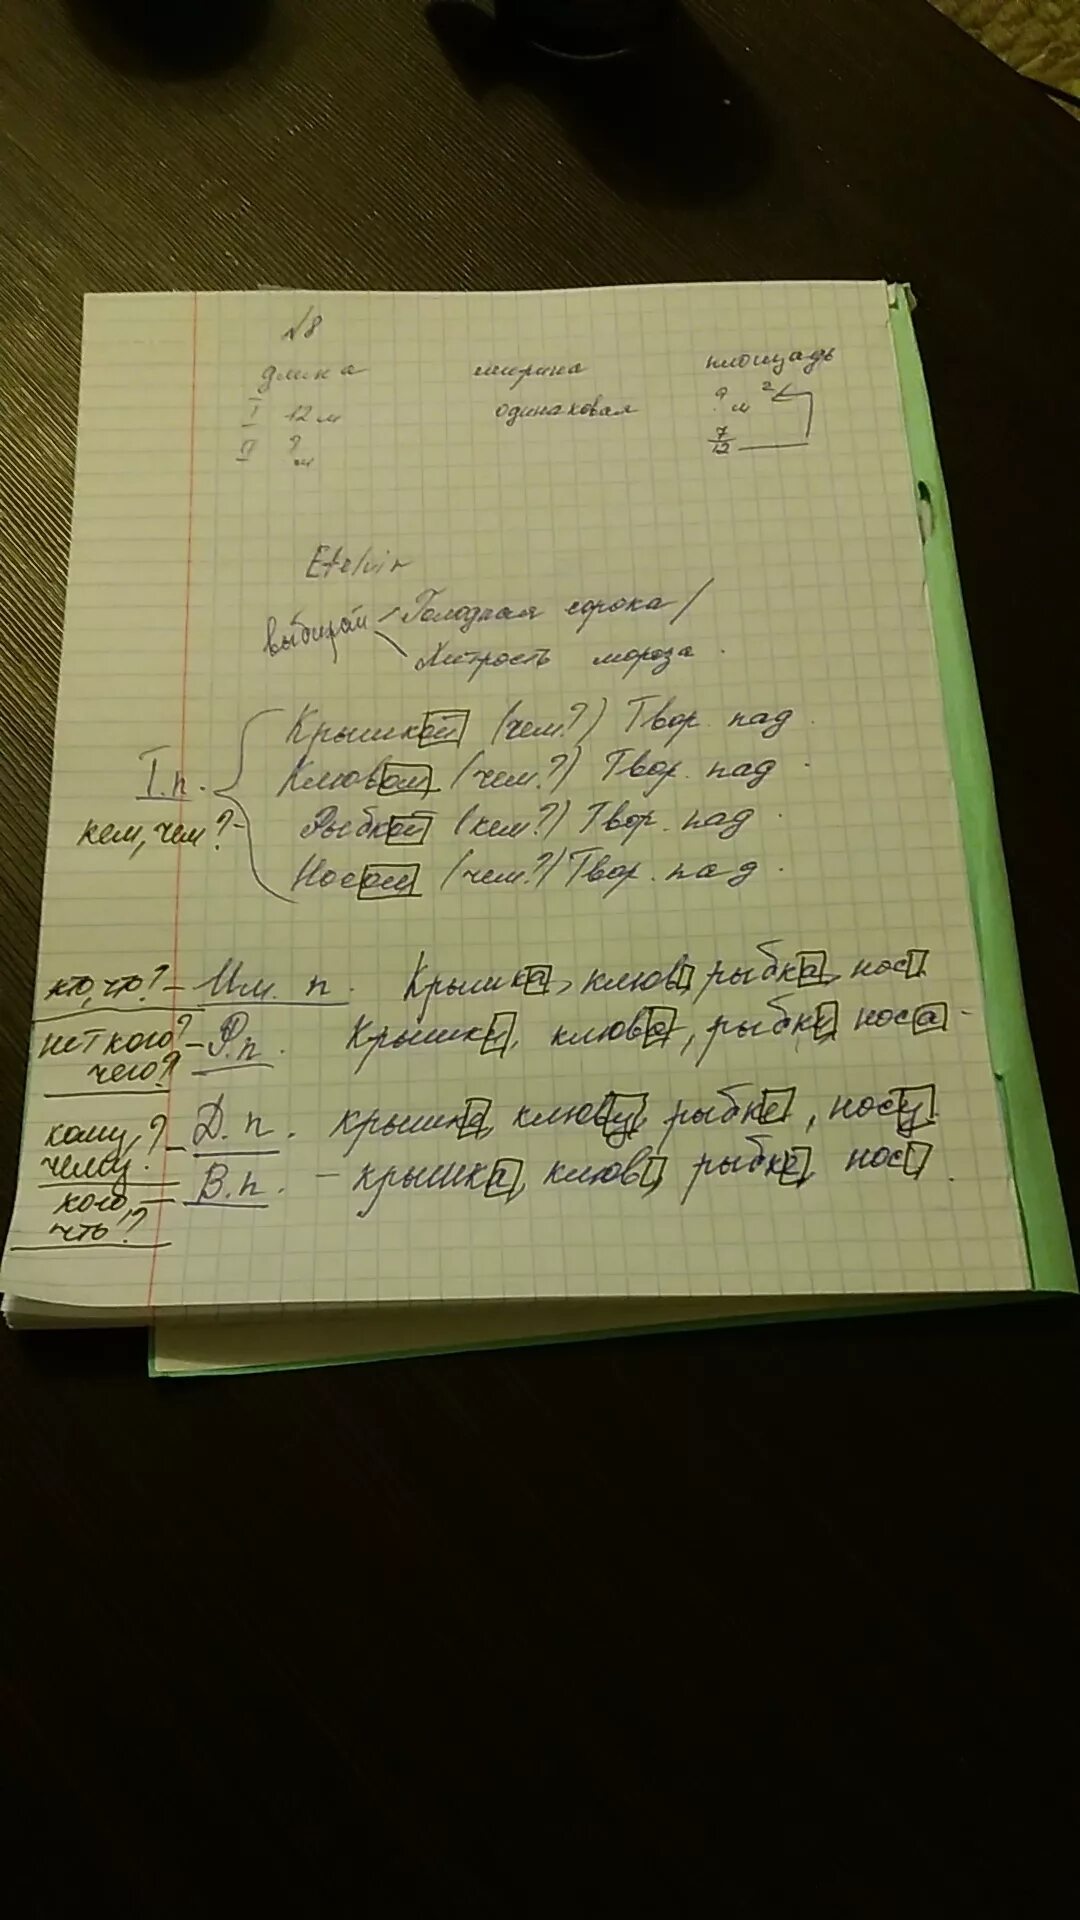 №8
длина ширина площадь
I 12 м одинаковая ? м²
II ? м 7/12
Etelvir
выбирай Голодная сорока /
Хитрость мороза.
Крышкой (чем?) Твор. пад.
Т.п. Клювом (чем?) Твор. пад.
кем, чем? - Рыбкой (кем?) Твор. пад.
Носом (чем?) Твор. пад.
кто, что? - Им. п. Крышка, клюв, рыбка, нос
нет кого? чего? - Р.п. Крышки, клюва, рыбки носа -
кому, чему? - Д.п. крышке, клюву, рыбке, носу.
кого, что? - В.п. - крышка, клюв, рыбка, нос.